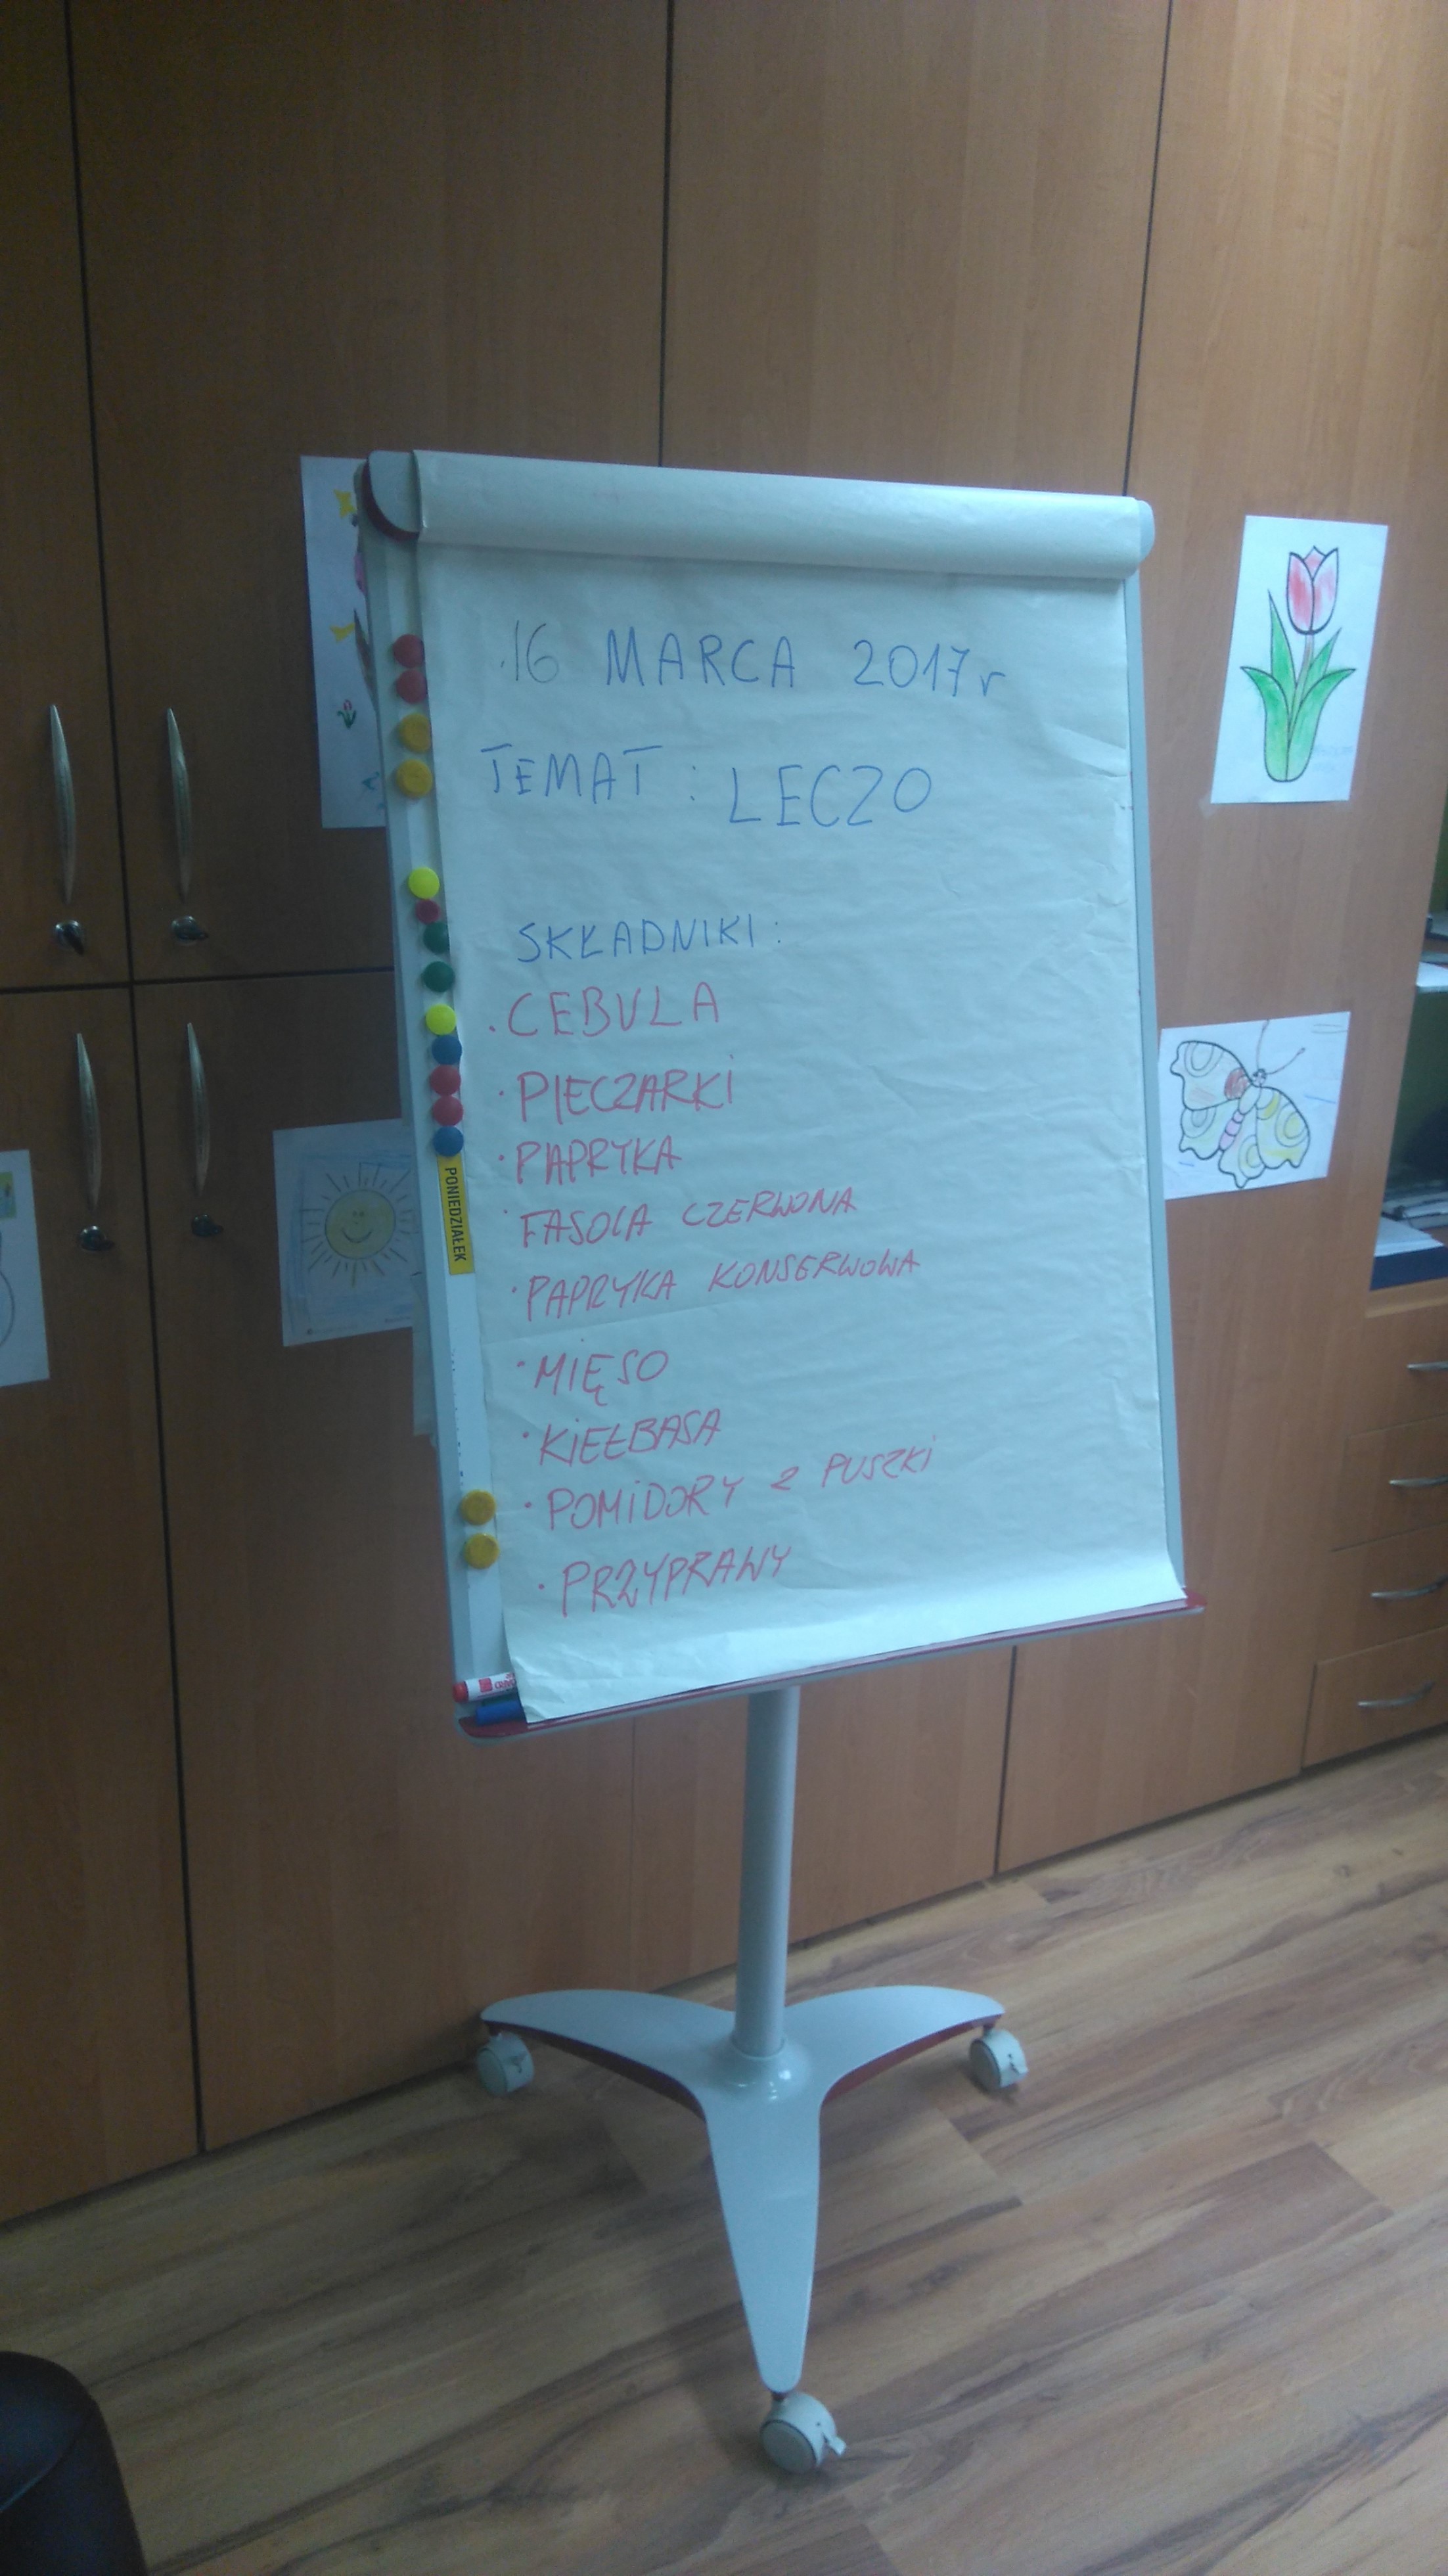 16 MARCA 2017r
TEMAT : LECZO
SKŁADNIKI :
· CEBULA
· PIECZARKI
· PAPRYKA
· FASOLA CZERWONA
· PAPRYKA KONSERWOWA
· MIĘSO
· KIEŁBASA
· POMIDORY Z PUSZKI
· PRZYPRAWY
PONIEDZIAŁEK